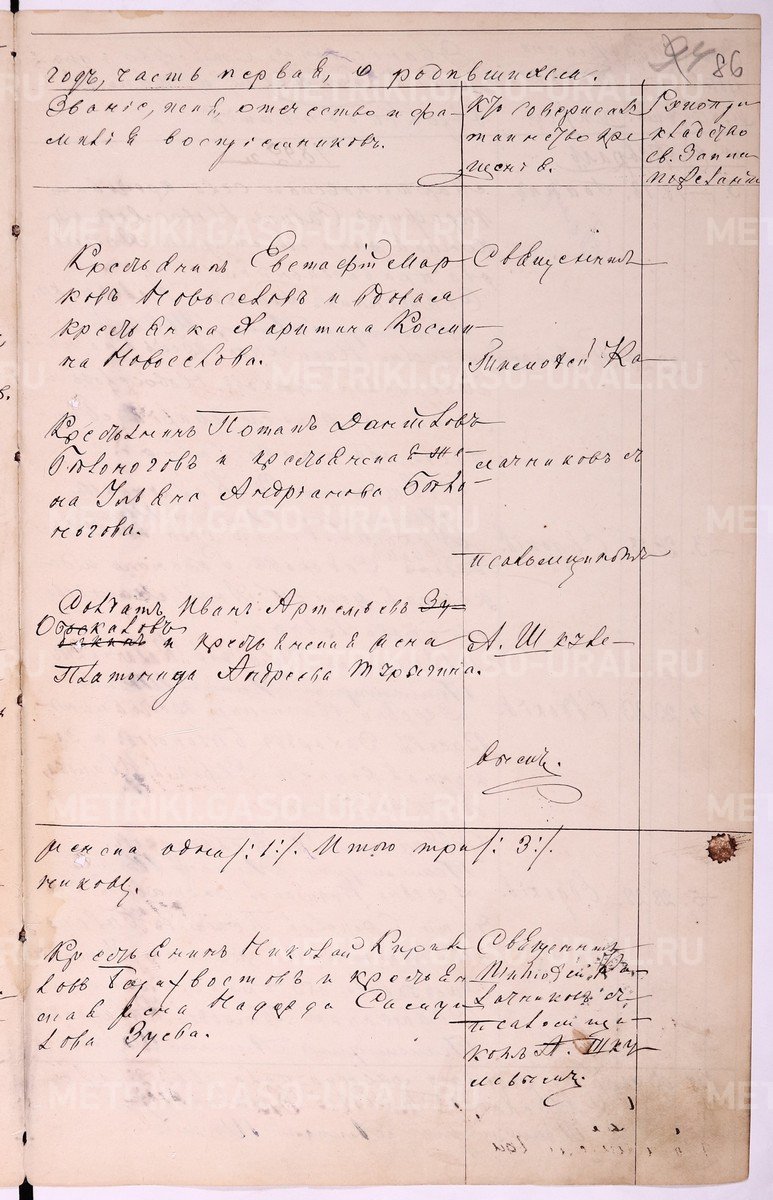 94 86
годъ, часть первая, о родившихся.
Званіе, имя, отечество и фа-
милія воспріемниковъ.
Кто совершалъ
таинство кре-
щенія.
Рукопри
кладство
св. Записи
по желанію
Крестьянинъ Евстафій Мар
ковъ Новоселовъ и вдовая
крестьянка Харитина Косми-
на Новоселова.
Крестьянинъ Потапъ Даниловъ
Бѣлоноговъ и крестьянская же-
на Ульяна Андріанова Бѣло-
ногова.
Солдатъ Иванъ Артемьевъ Зу-
Обоскаловъ
и крестьянская жена
Платонида Андреева Тарыгина.
Священникъ
Тимофей Ка-
лачниковъ съ
псаломщикомъ
А. Шкуле-
вымъ.
женска одна /:1:/. Итого три /:3:/.
никовъ.
Крестьянинъ Николай Кирил
ловъ Голохвостовъ и крестьян
ская жена Надежда Самуи
лова Зуева.
Священникъ
Тимофей Ка-
лачниковъ съ
псаломщи-
комъ А. Шку
левымъ.
METRIKI.GASO-URAL.RU